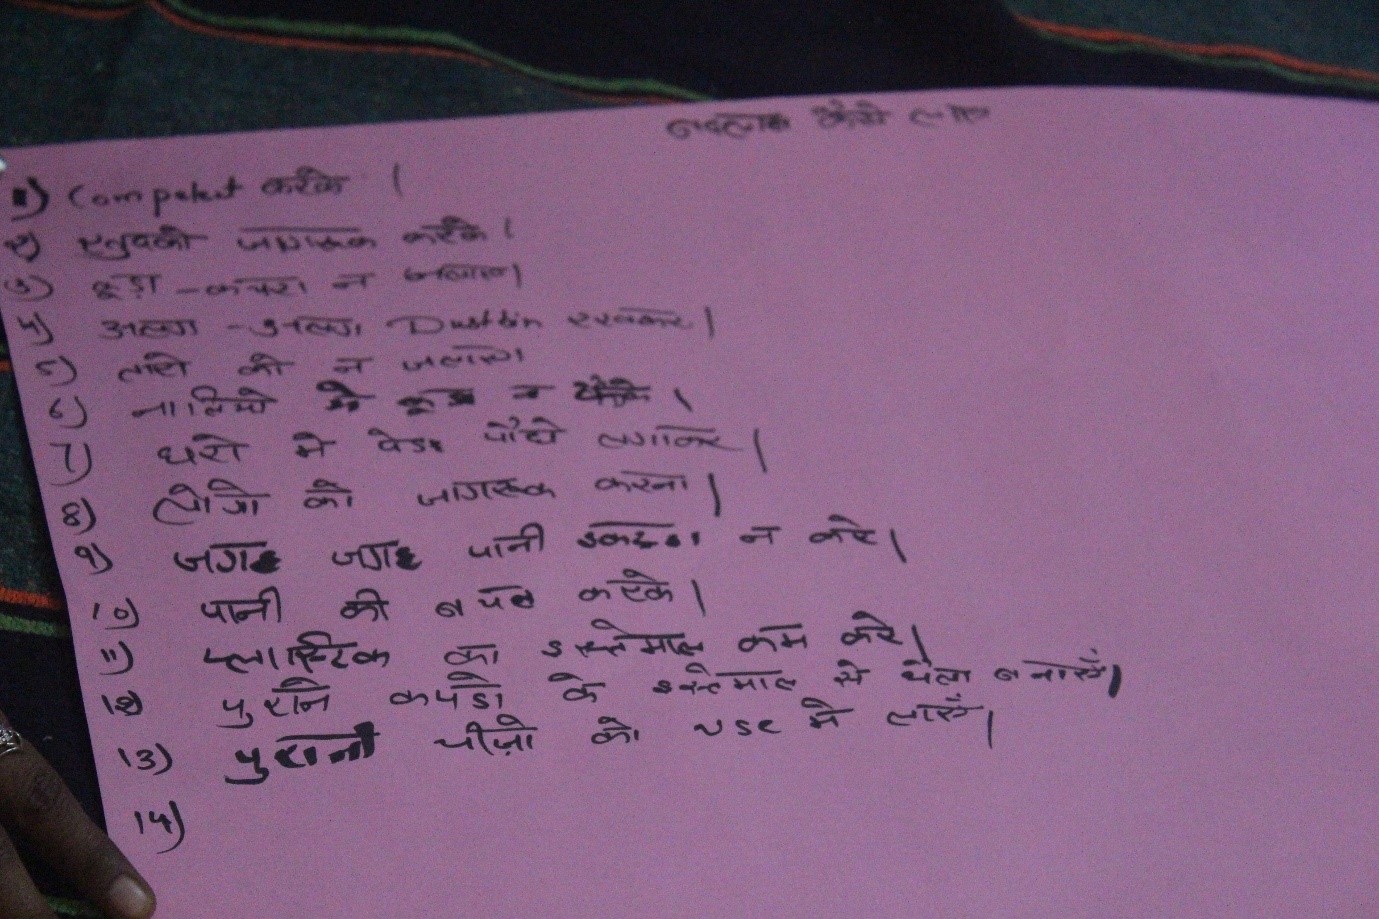 बदलाव कैसे लाए
1) Competect करके |
2) जागरूक करके |
3) कूड़ा - कचरा न जलाए |
4) अलग - अलग Dustbin रखकर |
5) तारो को न जलाए।
6) नालियो मे कूडा न फेंके |
7) घरो मे पेड पौधे लगाकर |
8) लोगो को जागरूक करना |
9) जगह जगह पानी इकट्ठा न करे |
10) पानी की बचत करके |
11) प्लास्टिक का इस्तेमाल कम करे |
12) पुराने कपडो के इस्तेमाल से थैला बनाएँ |
13) पुरानी चीज़ो को use मे लाएँ |
14)